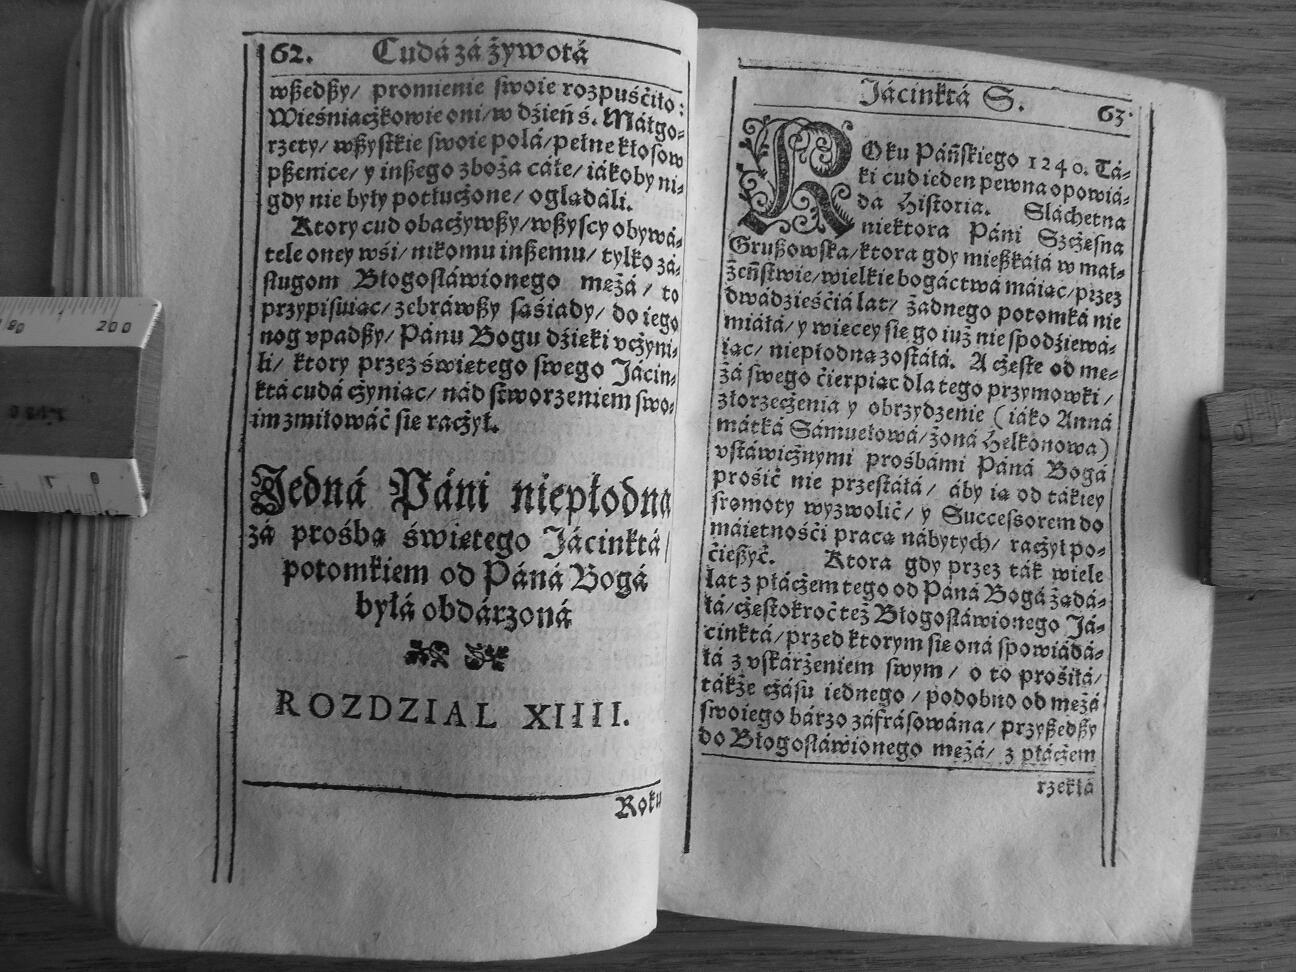 62. Cudá zá żywotá
wßedßy/ promienie swoie rozpuśćiło:
Wieśniaczkowie oni/ w dźień ś. Máłgo-
rzety/ wßystkie swoie polá/ pełne kłosow
pßenice/ y inßego zbożá cáłe/ iákoby ni-
gdy nie były potłuczone/ oglądáli.
Ktory cud obaczywßy/ wßyscy obywá-
tele oney wśi/ nikomu inßemu/ tylko zá-
sługom Błogosláwionego mężá/ to
przypisuiąc/ zebráwßy sąśiády/ do iego
nog vpadßy/ Pánu Bogu dźięki vczyni-
li/ ktory przez świętego swego Jácin-
ktá cudá czyniąc/ nád stworzeniem swo-
im zmiłowáć się raczył.
Jedná Páni niepłodna
zá prośbą świętego Jácinktá/
potomkiem od Páná Bogá
byłá obdárzoná
ROZDZIAL XIIII.
Roku
Jácinktá S. 63.
ROku Páńskiego 1240. Tá-
ki cud ieden pewna opowiá-
da Historia. Sláchetna
niektora Páni Szczęsna
Grußowska/ ktora gdy mießkáłá w mał-
żeństwie/ wielkie bogáctwá máiąc/ przez
dwádzieśćiá lat/ żadnego potomká nie
miáłá/ y więcey się go iuż nie spodźiewá-
iąc/ niepłodna zostáłá. A częste od mę-
żá swego ćierpiąc dla tego przymowki/
złorzeczenia y obrzydzenie (iáko Anná
mátká Sámuelowá/ żoná Helkonowa)
vstáwicznymi prośbámi Páná Bogá
prośić nie przestáłá/ áby ią od tákiey
sromoty wyzwolić/ y Successorem do
máiętnośći pracą nábytych/ raczył po-
ćießyć. Ktora gdy przez ták wiele
lat z płáczem tego od Páná Bogá żadá-
łá/ częstokroć też Błogosláwionego Já-
cinktá/ przed ktorym się oná spowiádá-
łá z vskárżeniem swym/ o to prośiłá/
tákże czásu iednego/ podobno od mężá
swoiego bárzo záfrásowána/ przyßedßy
do Błogosláwionego mężá/ z płáczem
rzekłá